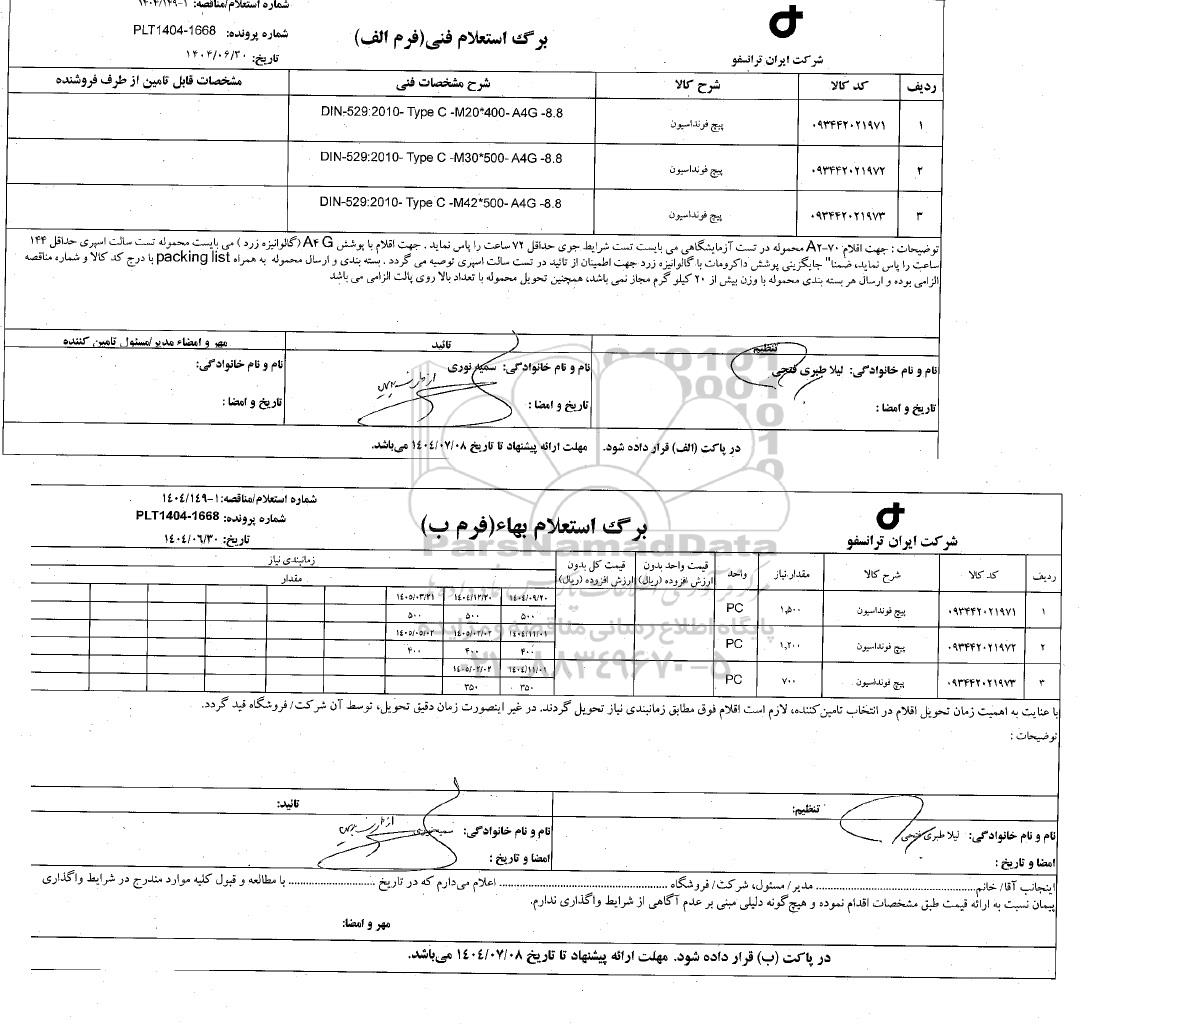 شماره استعلام/مناقصه: ۱-۱۴۰۴/۱۴۹
شماره پرونده: PLT1404-1668
برگ استعلام فنی(فرم الف)
تاریخ: ۱۴۰۴/۰۶/۳۰
شرکت ایران ترانسفو
ردیف کد کالا شرح کالا شرح مشخصات فنی مشخصات قابل تامین از طرف فروشنده
۱ ۰۹۳۴۴۲۰۲۱۹۷۱ پیچ فونداسیون DIN-529:2010- Type C -M20*400- A4G -8.8
۲ ۰۹۳۴۴۲۰۲۱۹۷۲ پیچ فونداسیون DIN-529:2010- Type C -M30*500- A4G -8.8
۳ ۰۹۳۴۴۲۰۲۱۹۷۳ پیچ فونداسیون DIN-529:2010- Type C -M42*500- A4G -8.8
توضیحات : جهت اقلام A۲-۷۰ محموله در تست آزمایشگاهی می بایست تست شرایط جوی حداقل ۷۲ ساعت را پاس نماید . جهت اقلام با پوشش A۴ G (گالوانیزه زرد ) می بایست محموله تست سالت اسپری حداقل ۱۴۴
ساعت را پاس نماید، ضمنا" جایگزینی پوشش داکرومات با گالوانیزه زرد جهت اطمینان از تائید در تست سالت اسپری توصیه می گردد . بسته بندی و ارسال محموله به همراه packing list با درج کد کالا و شماره مناقصه
الزامی بوده و ارسال هر بسته بندی محموله با وزن بیش از ۲۰ کیلو گرم مجاز نمی باشد، همچنین تحویل محموله با تعداد بالا روی پالت الزامی می باشد
تنظیم تائید مهر و امضاء مدیر/مسئول تامین کننده
نام و نام خانوادگی: لیلا طبری فتحی نام و نام خانوادگی: سمیه نوری نام و نام خانوادگی:
تاریخ و امضا : تاریخ و امضا : تاریخ و امضا :
در پاکت (الف) قرار داده شود. مهلت ارائه پیشنهاد تا تاریخ ۱۴۰۴/۰۷/۰۸ می‌باشد.
شماره استعلام/مناقصه: ۱-۱۴۰۴/۱۴۹
شماره پرونده: PLT1404-1668
برگ استعلام بهاء(فرم ب)
تاریخ: ۱۴۰۴/۰۶/۳۰
شرکت ایران ترانسفو
ParsNamadData
پایگاه اطلاع رسانی مناقصه و مزایده
۰۲۱-۸۸۳۴۹۶۷۰-۵
ردیف کد کالا شرح کالا واحد مقدار نیاز قیمت واحد بدون ارزش افزوده (ریال) قیمت کل بدون ارزش افزوده (ریال) زمانبندی نیاز
مقدار
۱ ۰۹۳۴۴۲۰۲۱۹۷۱ پیچ فونداسیون ۱,۵۰۰ PC ۱۴۰۴/۰۹/۲۰ ۱۴۰۴/۱۲/۲۰ ۱۴۰۵/۰۳/۲۱
۵۰۰ ۵۰۰ ۵۰۰
۲ ۰۹۳۴۴۲۰۲۱۹۷۲ پیچ فونداسیون ۱,۲۰۰ PC ۱۴۰۴/۱۱/۰۱ ۱۴۰۵/۰۲/۰۲ ۱۴۰۵/۰۵/۰۲
۴۰۰ ۴۰۰ ۴۰۰
۳ ۰۹۳۴۴۲۰۲۱۹۷۳ پیچ فونداسیون ۷۰۰ PC ۱۴۰۴/۱۱/۰۱ ۱۴۰۵/۰۲/۰۲
۳۵۰ ۳۵۰
با عنایت به اهمیت زمان تحویل اقلام در انتخاب تامین‌کننده، لازم است اقلام فوق مطابق زمانبندی نیاز تحویل گردند. در غیر اینصورت زمان دقیق تحویل، توسط آن شرکت/ فروشگاه قید گردد.
توضیحات :
تنظیم: تائید:
نام و نام خانوادگی: لیلا طبری فتحی نام و نام خانوادگی:
امضا و تاریخ : امضا و تاریخ :
اینجانب آقا/ خانم........ مدیر/ مسئول، شرکت/ فروشگاه ........ اعلام می‌دارم که در تاریخ ........ با مطالعه و قبول کلیه موارد مندرج در شرایط واگذاری
پیمان نسبت به ارائه قیمت طبق مشخصات اقدام نموده و هیچ‌گونه دلیلی مبنی بر عدم آگاهی از شرایط واگذاری ندارم.
مهر و امضا:
در پاکت (ب) قرار داده شود. مهلت ارائه پیشنهاد تا تاریخ ۱۴۰۴/۰۷/۰۸ می‌باشد.